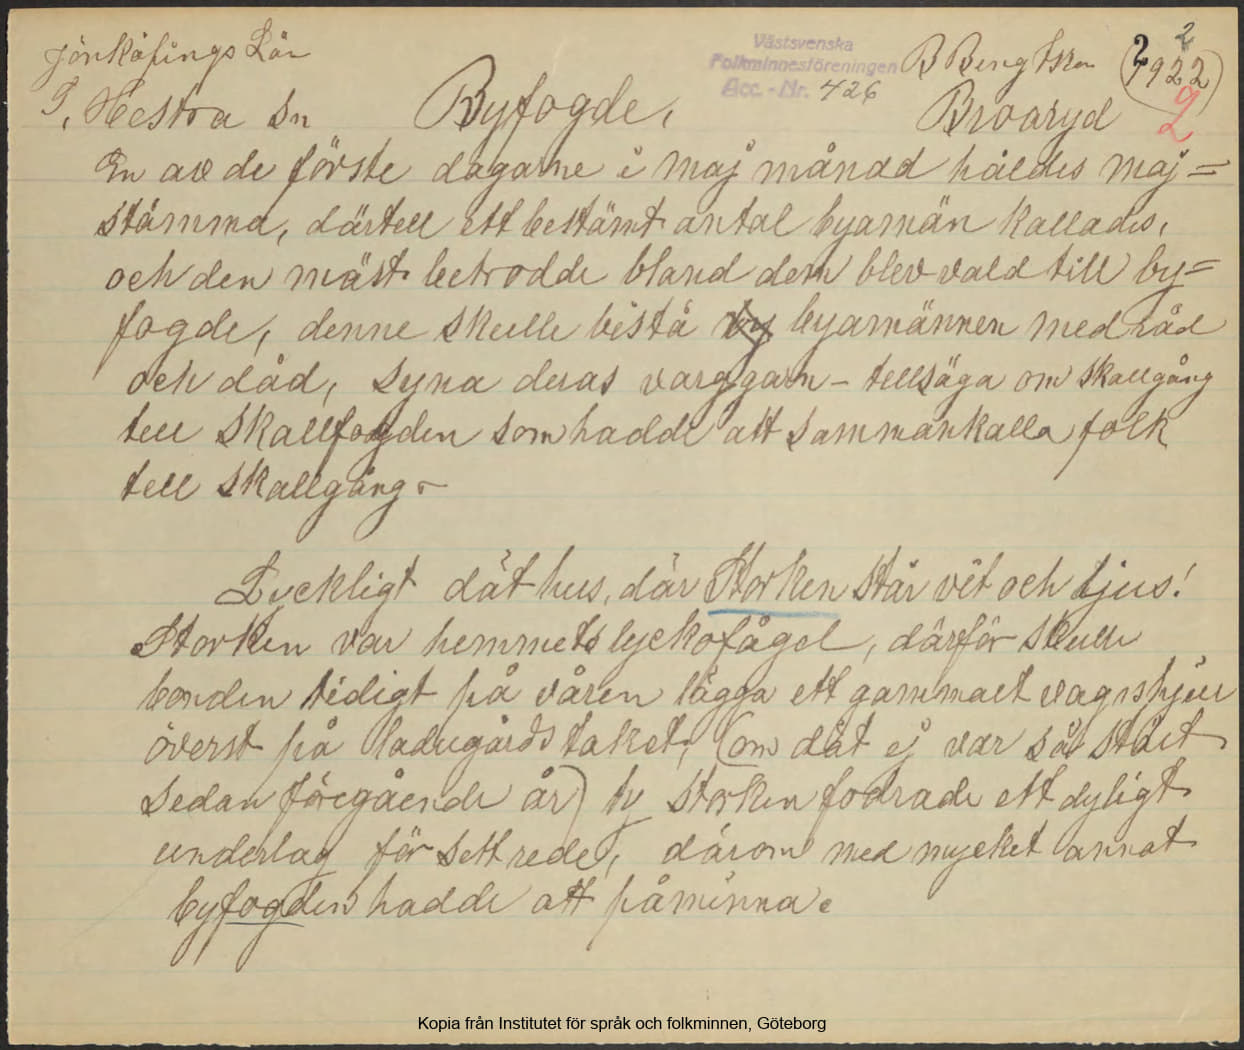 Jönköpings Län
S. Hestra Sn
Byfogde,
Västsvenska
Folkminnesföreningen
Acc.-Nr. 426
B Bengtsson
Broaryd
2
2
1922
9
2
En av de förste dagarne i maj månad håldes maj=
stämma, därtell ett bestämt antal byamän kallades,
och den mäst betrodde bland dem blev vald till by=
fogde, denne skulle bistå by byamännen med råd
och dåd, syna deras varggarn - tellsäga om skallgång
tell skallfogden som hadde att sammankalla folk
tell skallgång.
Lyckligt dät hus, där Storken står vit och ljus!
Storken var hemmets lyckofågel, därför skulle
bonden tidigt på våren lägga ett gammalt vagnshjul
överst på ladugårdstaket, (om dät ej var så ställt
sedan föregående år) ty storken fodrade ett dyligt
underlag för sett rede, därom med mycket annat
byfogden hadde att påminna.
Kopia från Institutet för språk och folkminnen, Göteborg